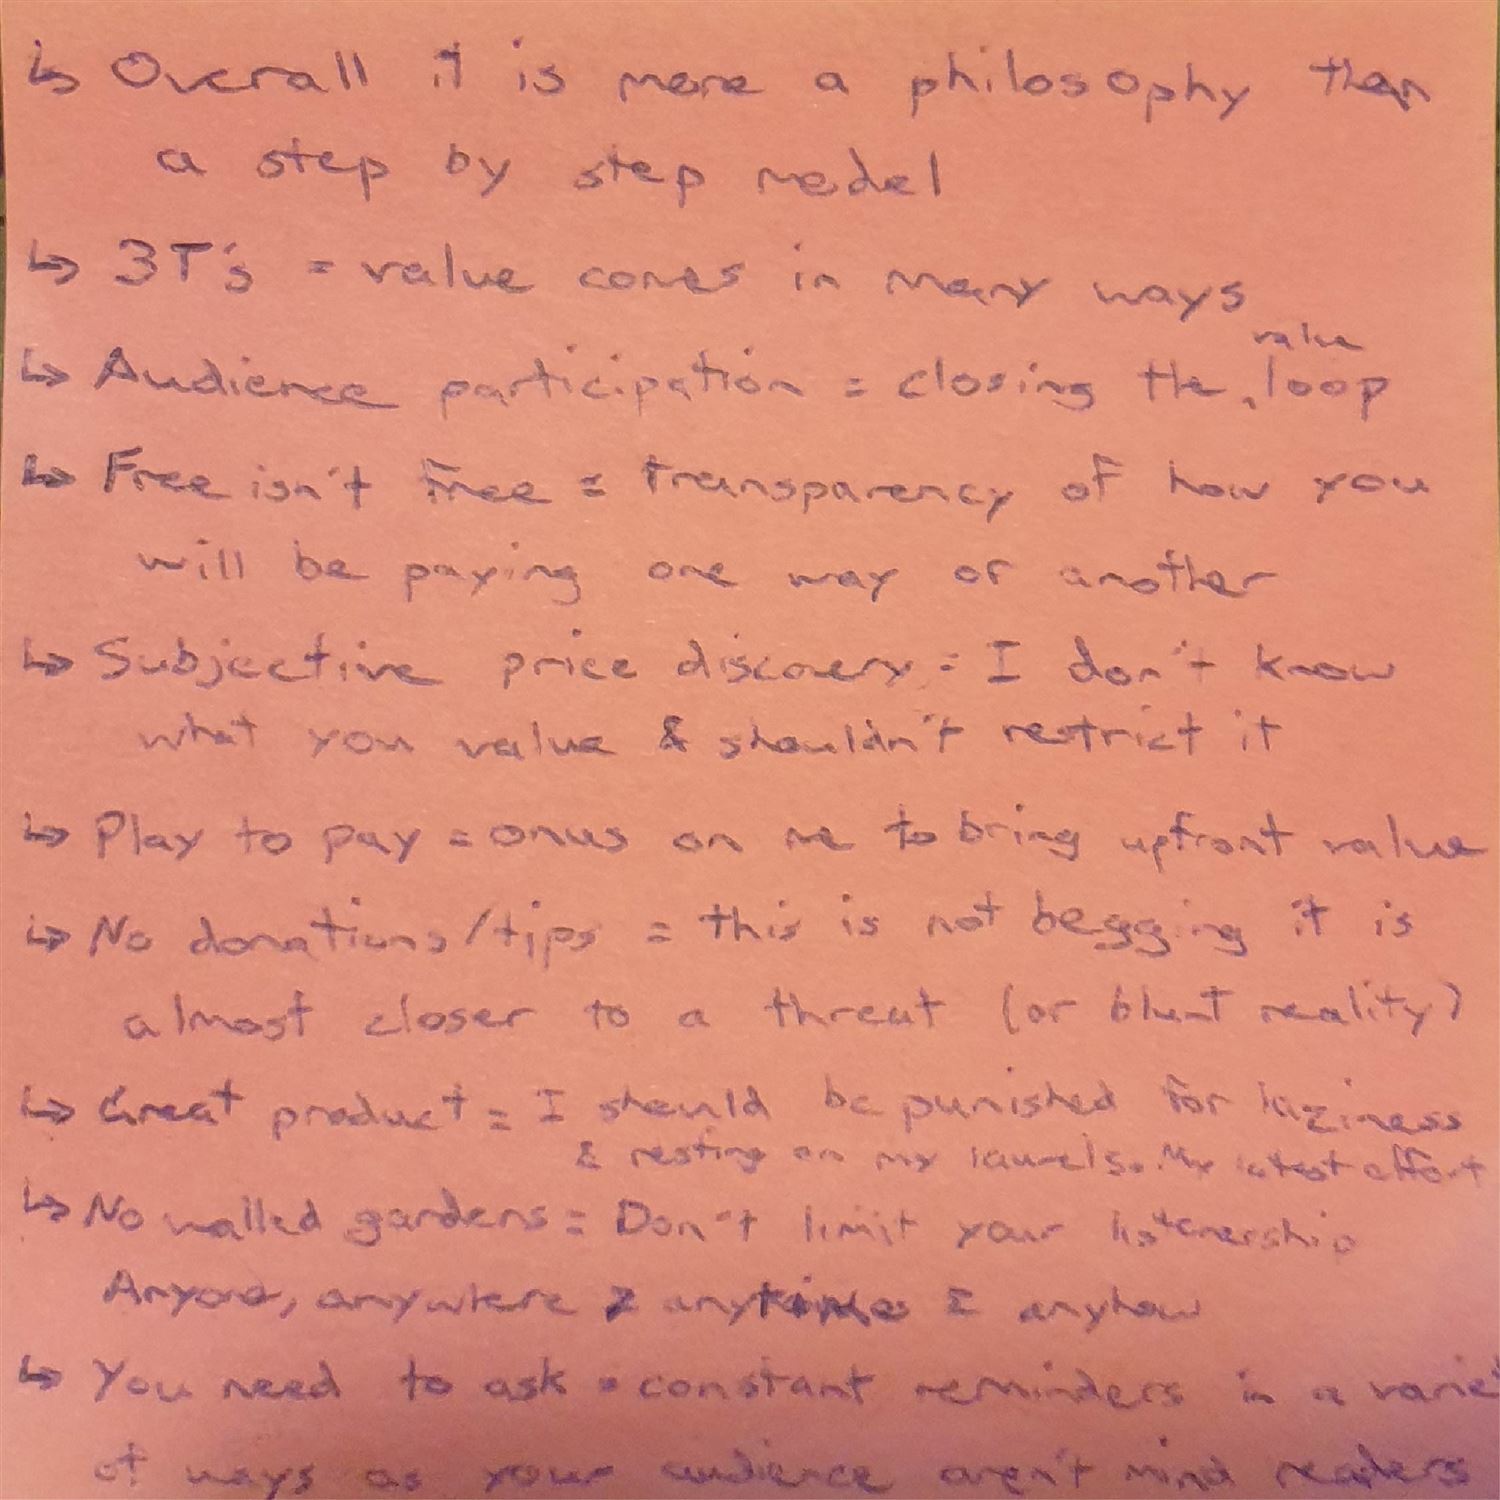 ↳ Overall it is more a philosophy than
a step by step model
↳ 3T's = value comes in many ways
↳ Audience participation = closing the ‸value loop
↳ Free isn't free = transparency of how you
will be paying one way or another
↳ Subjective price discovery = I don't know
what you value & shouldn't restrict it
↳ Play to pay = onus on me to bring upfront value
↳ No donations/tips = this is not begging it is
almost closer to a threat (or blunt reality)
↳ Great product = I should be punished for laziness
& resting on my laurels. My latest effort
↳ No walled gardens = Don't limit your listenership
Anyone, anywhere & anytime & anyhow
↳ You need to ask = constant reminders in a variet
of ways as your audience aren't mind readers